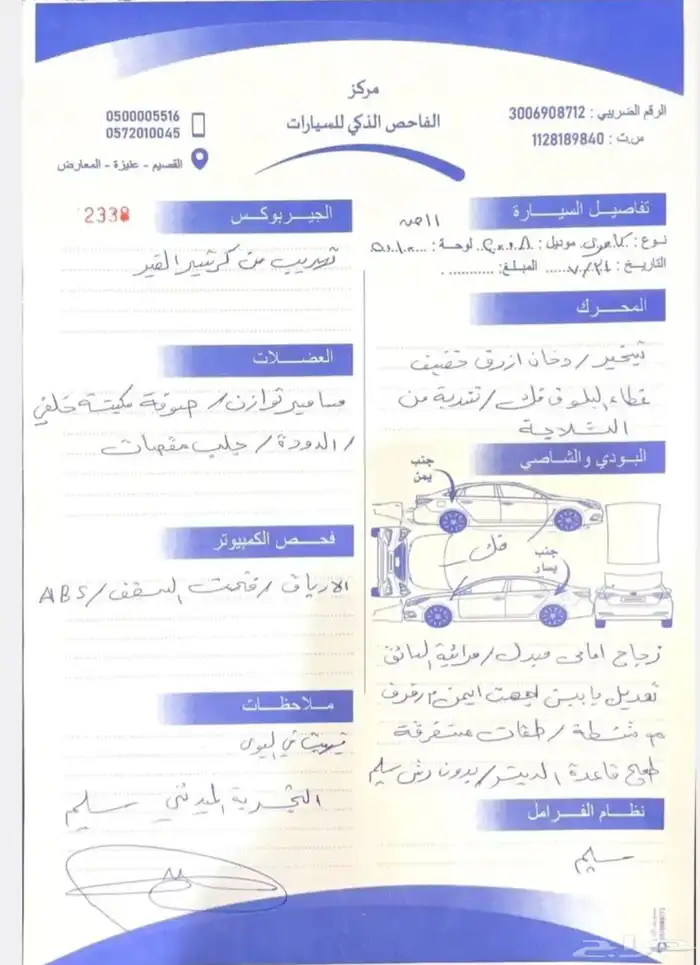 مركز
الفاحص الذكي للسيارات
الرقم الضريبي : 3006908712
س.ت : 1128189840
0500005516
0572010045
القصيم - عنيزة - المعارض
تفاصيل السيارة
نوع : كامري موديل : لوحة :
التاريخ : ٧/٢٤ المبلغ :
المحرك
تبخير / دخان ازرق خفيف
غطاء البلوف فك / تندية من
الثلاجة
البودي والشاصي
جنب
يمن
فك
جنب
يسار
زجاج امامي مبدل / مرائية السائق
تعديل يابيس لجهت ايمن / رفرف
م شنطة / طقات متفرقة
قاعدة الديتر / بدون رش سليم
نظام الفرامل
سليم
الجيربوكس
2338
تهريب من كرتير القير
العضلات
مسامير توازن / صوفة مكينة خلفي
/ الدودة / جلب مقصات
فحص الكمبيوتر
الارياق / فتحت السقف / ABS
ملاحظات
تهريب في
التجربة الميدني سليم
حراج